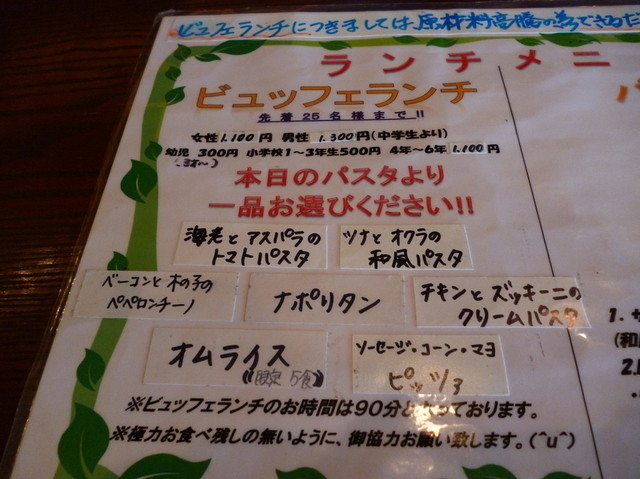 ビュッフェランチにつきましては原材料高騰の為できるだ
ランチメニ
ビュッフェランチ
先着25名様まで!!
女性1.100円 男性1.300円(中学生より)
幼児 300円 小学校1～3年生500円 4年～6年1.100円
(3才～)
本日のパスタより
一品お選びください!!
海老とアスパラの
トマトパスタ
ツナとオクラの
和風パスタ
ベーコンと木の子の
ペペロンチーノ
ナポリタン
チキンとズッキーニの
クリームパスタ
オムライス
(限定5食)
ソーセージ・コーン・マヨ
ピッツァ
※ビュッフェランチのお時間は90分となっております。
※極力お食べ残しの無いように、御協力お願い致します。(^u^)
1.サ
(和
2.